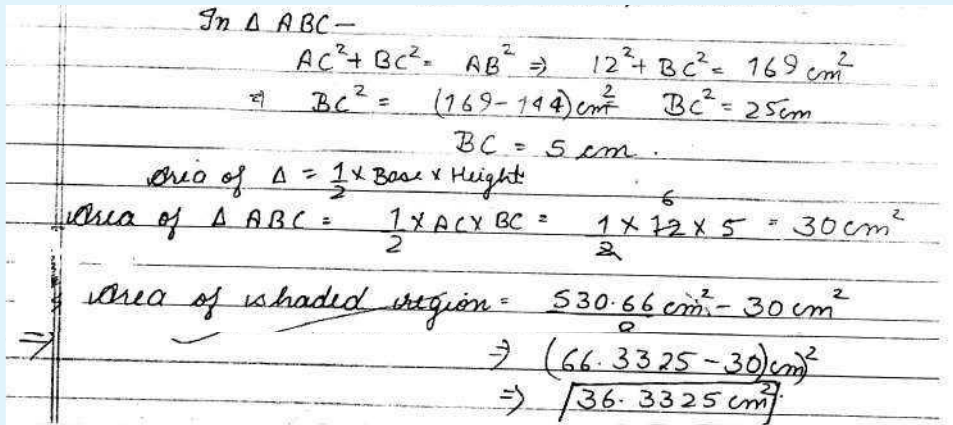 In Δ ABC —
AC² + BC² = AB² ⇒ 12² + BC² = 169 cm²
⇒ BC² = (169-144) cm² BC² = 25cm
BC = 5 cm.
Area of Δ = 1/2 × Base × Height
Area of Δ ABC = 1/2 × AC × BC = 1/2 × 12 6 × 5 = 30 cm²
Area of shaded region = 530.66 cm²/8 - 30 cm²
⇒ ⇒ (66.3325 - 30) cm²
⇒ 36.3325 cm²